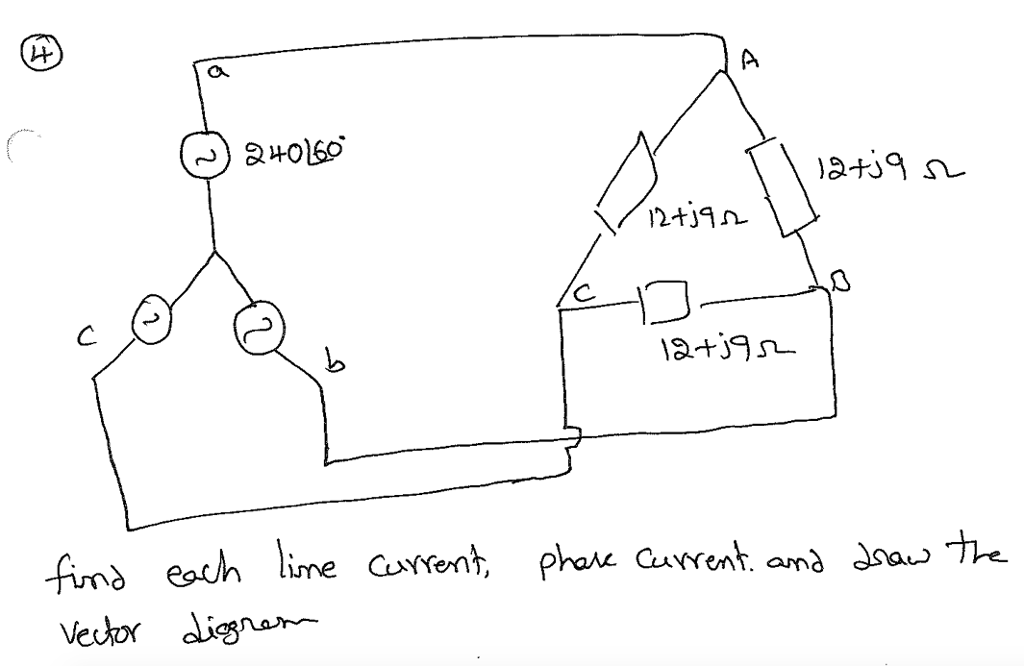 4
a
A
240∠60°
12+j9 Ω
12+j9Ω
C
B
c
12+j9Ω
b
find each line current, phase current. and draw the
vector diagram